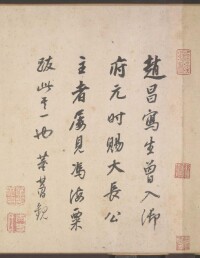 趙昌寫生曾入御
府元时賜大長公
主者屡見馮海粟
跋此其一也 華